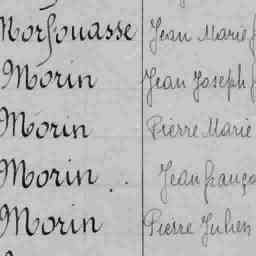 Morfouasse Jean Marie
Morin Jean Joseph
Morin Pierre Marie
Morin Jean franço
Morin Pierre Julien